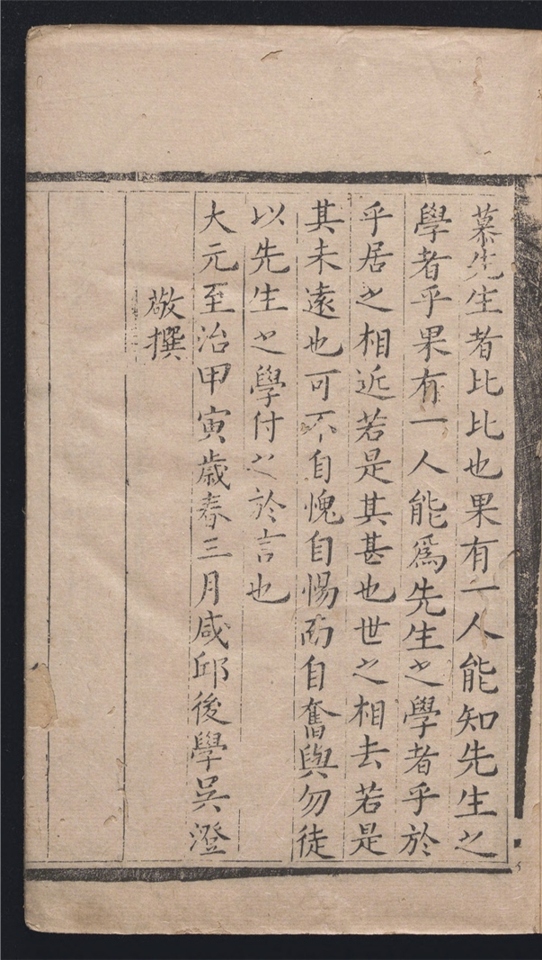 慕先生者比比也果有一人能知先生之
學者乎果有一人能爲先生之學者乎於
乎居之相近若是其甚也世之相去若是
其未遠也可不自愧自惕而自奮與勿徒
以先生之學付之於言也
大元至治甲寅歲春三月咸邱後學吳澄
敬撰